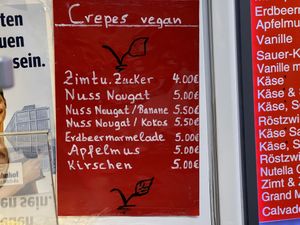 ten
uen
sein.
Crepes vegan
Zimt u. Zucker 4.00€
Nuss Nougat 5.00€
Nuss Nougat/Banane 5.50€
Nuss Nougat/Kokos 5.50€
Erdbeermarmelade 5.00€
Apfelmus 5.00€
Kirschen 5.00€
Erdbeerm
Apfelmu
Vanille
Sauer-K
Vanille m
Käse
Käse &
Käse, S
Röstzwi
Käse, S
Käse, S
Röstzwi
Nutella C
Zimt & Z
Grand M
Calvado